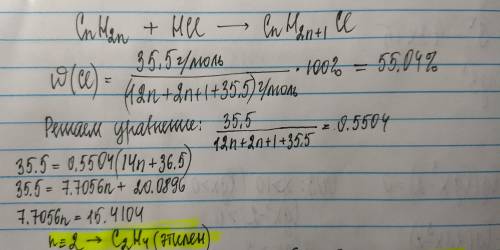 CnH2n + HCl ⟶ CnH2n+1Cl
ω(Cl) = 35,5 г/моль / (12n+2n+1+35.5) г/моль · 100% = 55.04%
Решаем уравнение: 35,5 / 12n+2n+1+35.5 = 0.5504
35.5 = 0,5504(14n+36.5)
35.5 = 7.7056n + 20.0896
7.7056n = 15.4104
n = 2 → C2H4 (этилен)